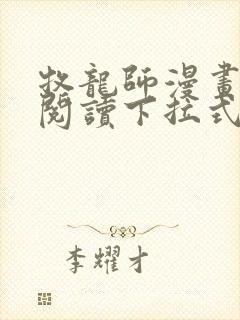 牧龍師漫畫
閱讀下拉式
李耀才